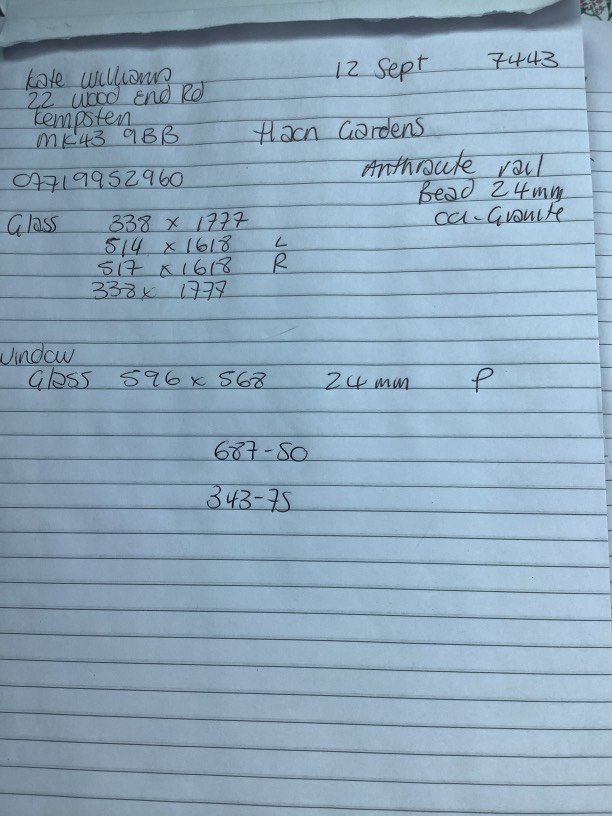 Kate Williams 12 Sept 7443
22 Wood End Rd
Kempsten
MK43 9BB Gardens
07719952960 Anthracite rail
Bead 24mm
Glass 338 x 1777 Granite
514 x 1618 L
517 x 1618 R
338 x 1777
Window
Glass 596 x 568 24mm P
687-50
343-75